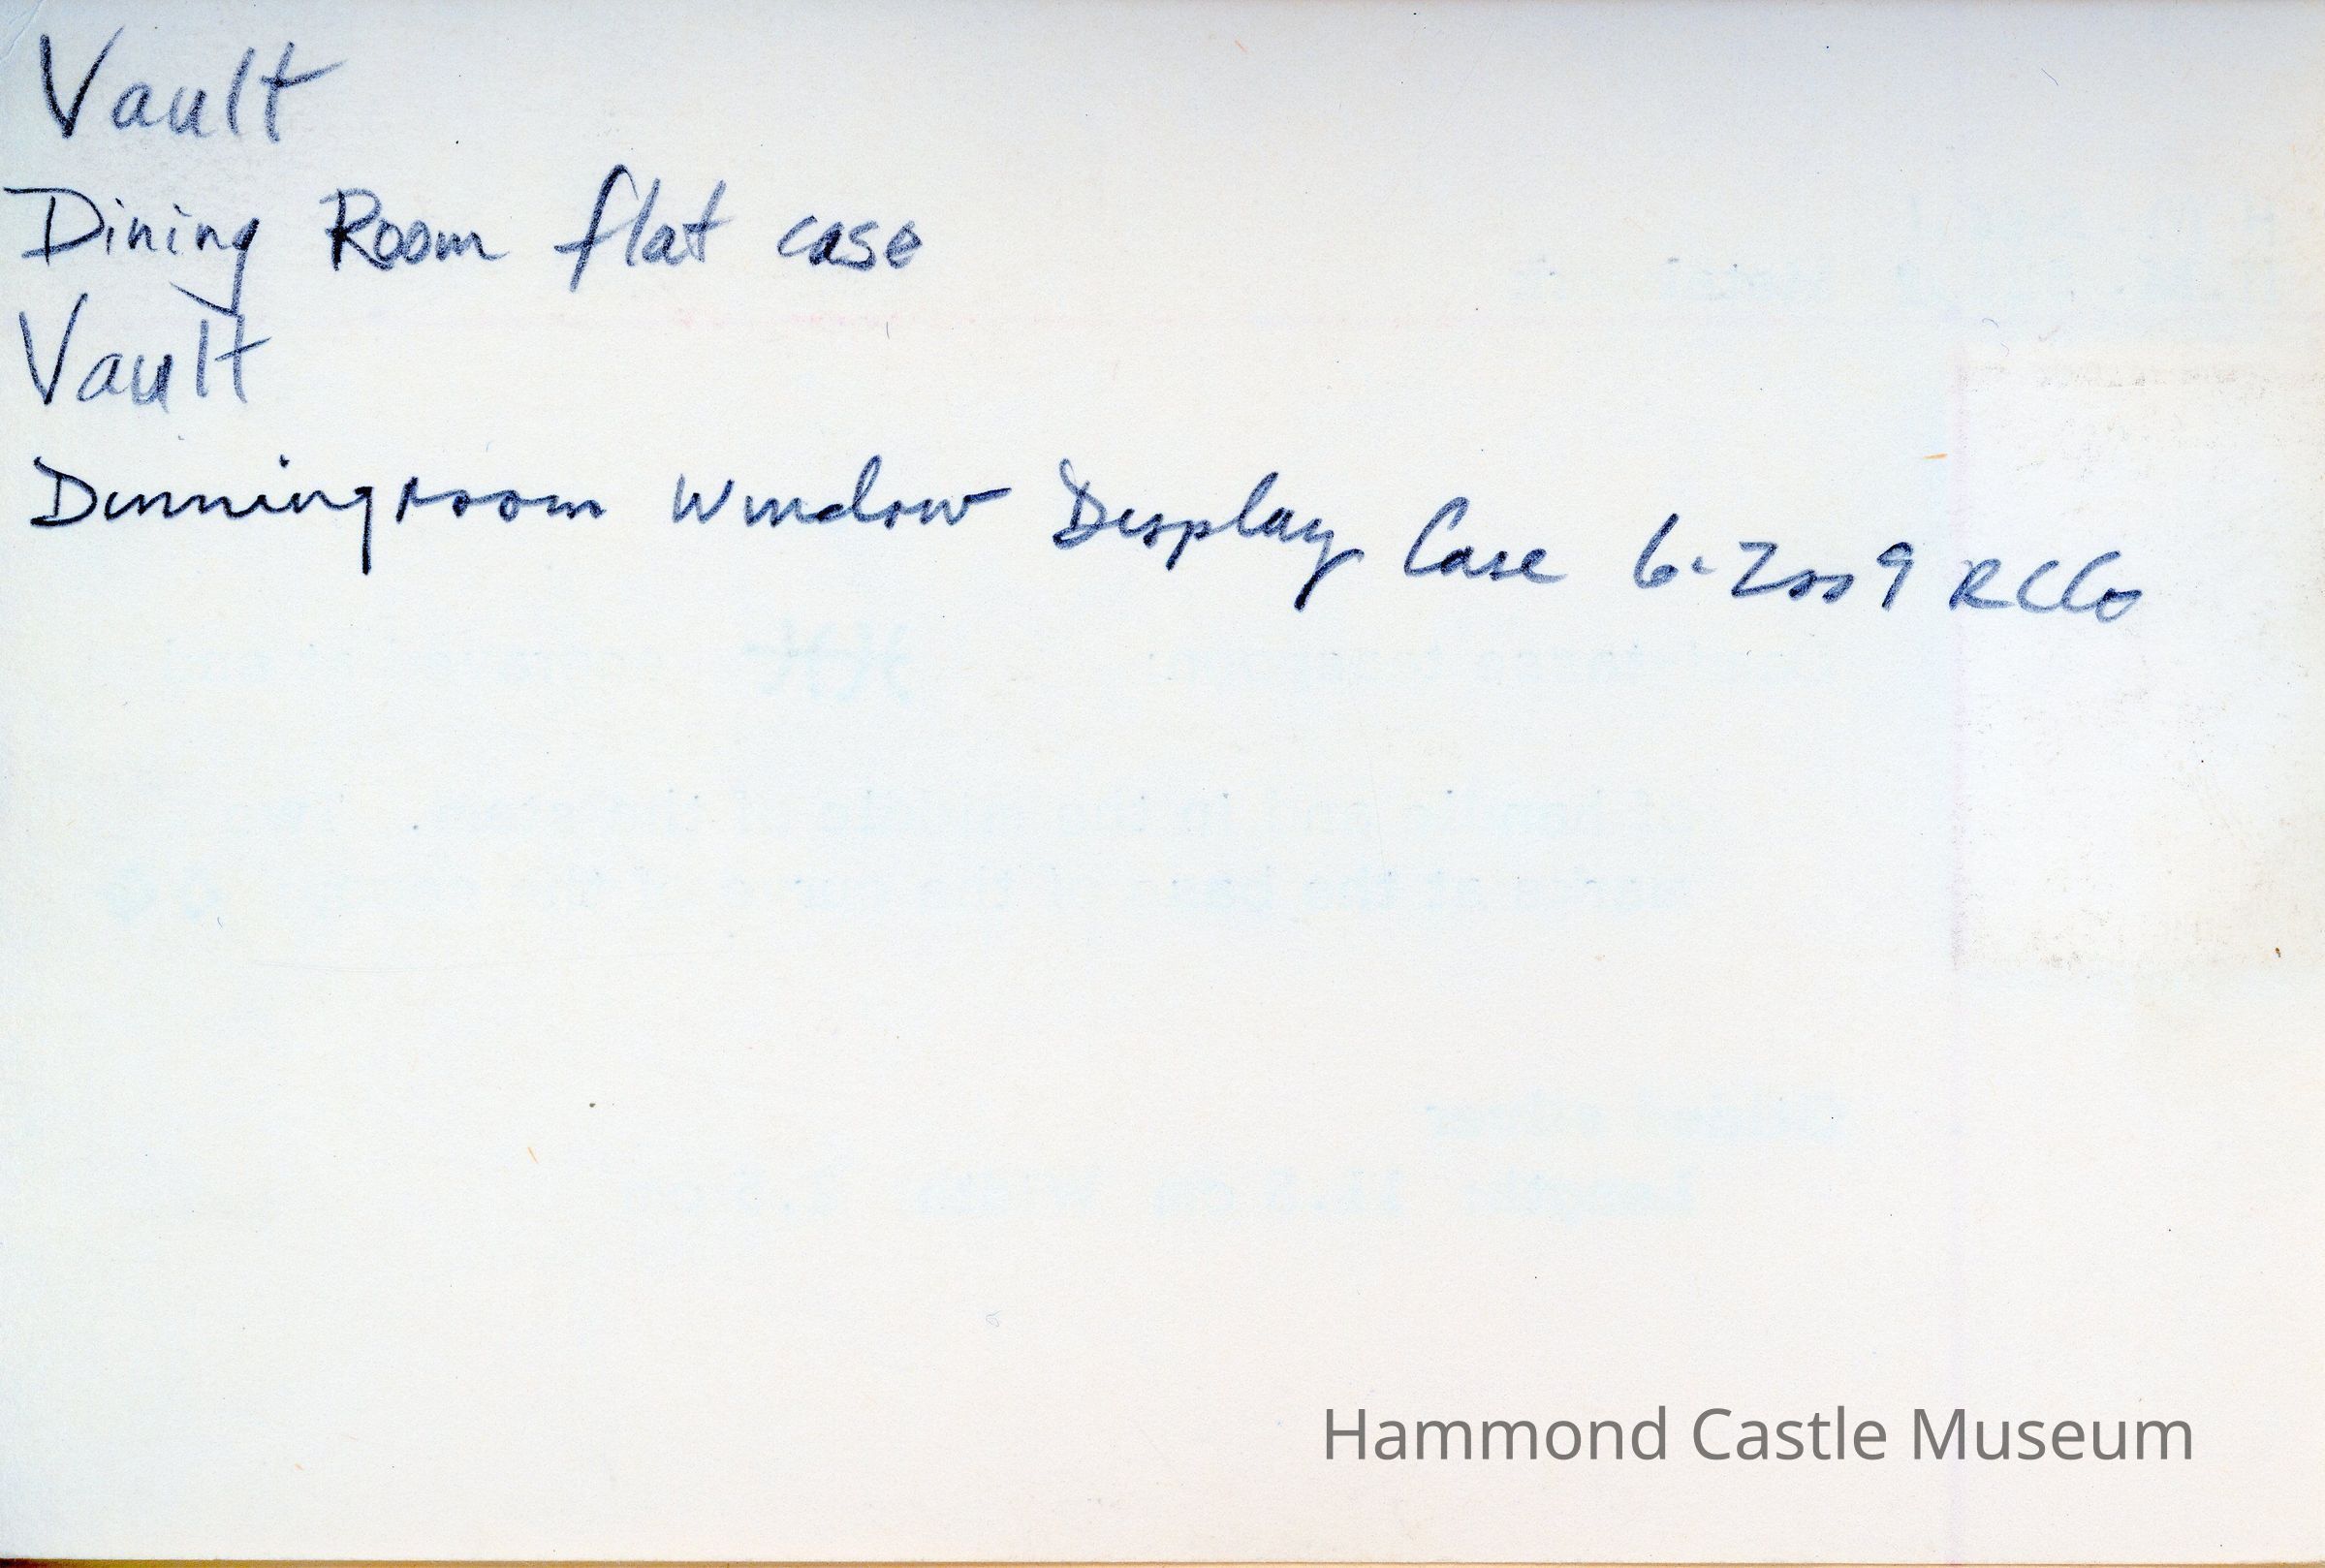 Vault
Dining Room flat case
Vault
Dinning room Window Display Case 6-2009 RCCo
Hammond Castle Museum